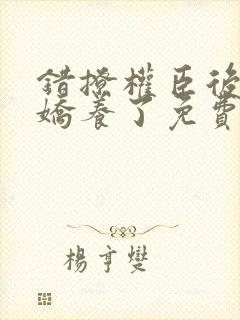 錯撩權臣後
嬌養了免費
楊亨燮